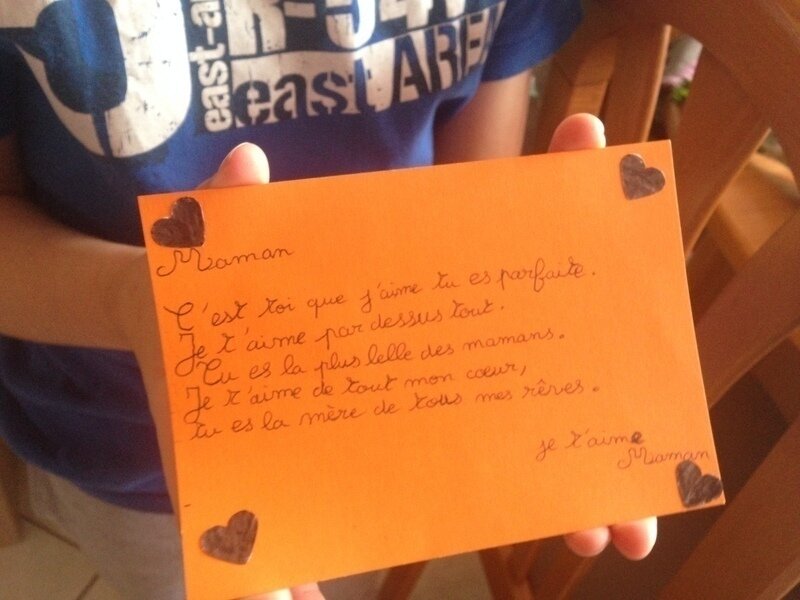 east-ar
east AREA
Maman
C'est toi que j'aime tu es parfaite.
Je t'aime par dessus tout.
Tu es la plus lelle des mamans.
Je t'aime de tout mon cœur,
tu es la mère de tous mes rêves.
je t'aime
Maman